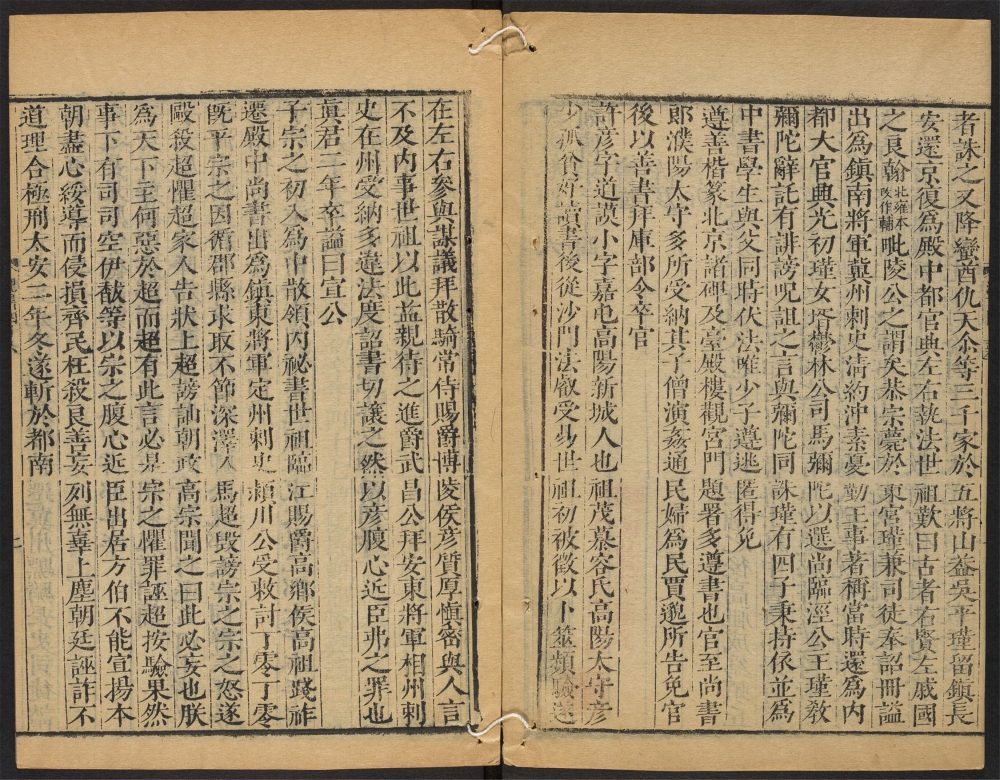 者誅之又降蠻酋仇天尒等三千家於五將山蓋吳平瑾留鎮長
安還京復為殿中都官典左右執法世祖歎曰古者右賢左戚國
之良翰北雍本改作輔毗陵公之謂矣恭宗薨於東宮瑾兼司徒奉詔冊謚
出為鎮南將軍冀州刺史清約沖素憂勤王事著稱當時還為內
都大官興光初瑾女壻鬱林公司馬彌陀以選尚臨涇公主瑾敎
彌陀辭託有誹謗呪詛之言與彌陀同誅瑾有四子秉持依並為
中書學生與父同時伏法唯少子遵逃匿得免
遵善楷篆北京諸碑及臺殿樓觀宮門題署多遵書也官至尚書
郎濮陽太守多所受納其子僧演姦通民婦為民賈邈所告免官
後以善書拜庫部令卒官
許彥字道謨小字嘉屯高陽新城人也祖茂慕容氏高陽太守彥
少孤貧好讀書後從沙門法叡受易世祖初被徵以卜筮頻驗遂
在左右參與謀議拜散騎常侍賜爵博陵侯彥質厚慎密與人言
不及內事世祖以此益親待之進爵武昌公拜安東將軍相州刺
史在州受納多違法度詔書切讓之然以彥腹心近臣弗之罪也
眞君二年卒謚曰宣公
子宗之初入為中散領內秘書世祖臨江賜爵高鄉侯高祖踐祚
遷殿中尚書出為鎮東將軍定州刺史潁川公受敕討丁零丁零
旣平宗之因循郡縣求取不節深澤人馬超毀謗宗之宗之怒遂
毆殺超懼超家人告狀上超謗訕朝政高宗聞之曰此必妄也朕
為天下主何惡於超而超有此言必是宗之懼罪誣超按驗果然
事下有司司空伊馛等以宗之腹心近臣出居方伯不能宣揚本
朝盡心綏導而侵損齊民枉殺良善妄列無辜上塵朝廷誣詐不
道理合極刑太安二年冬遂斬於都南